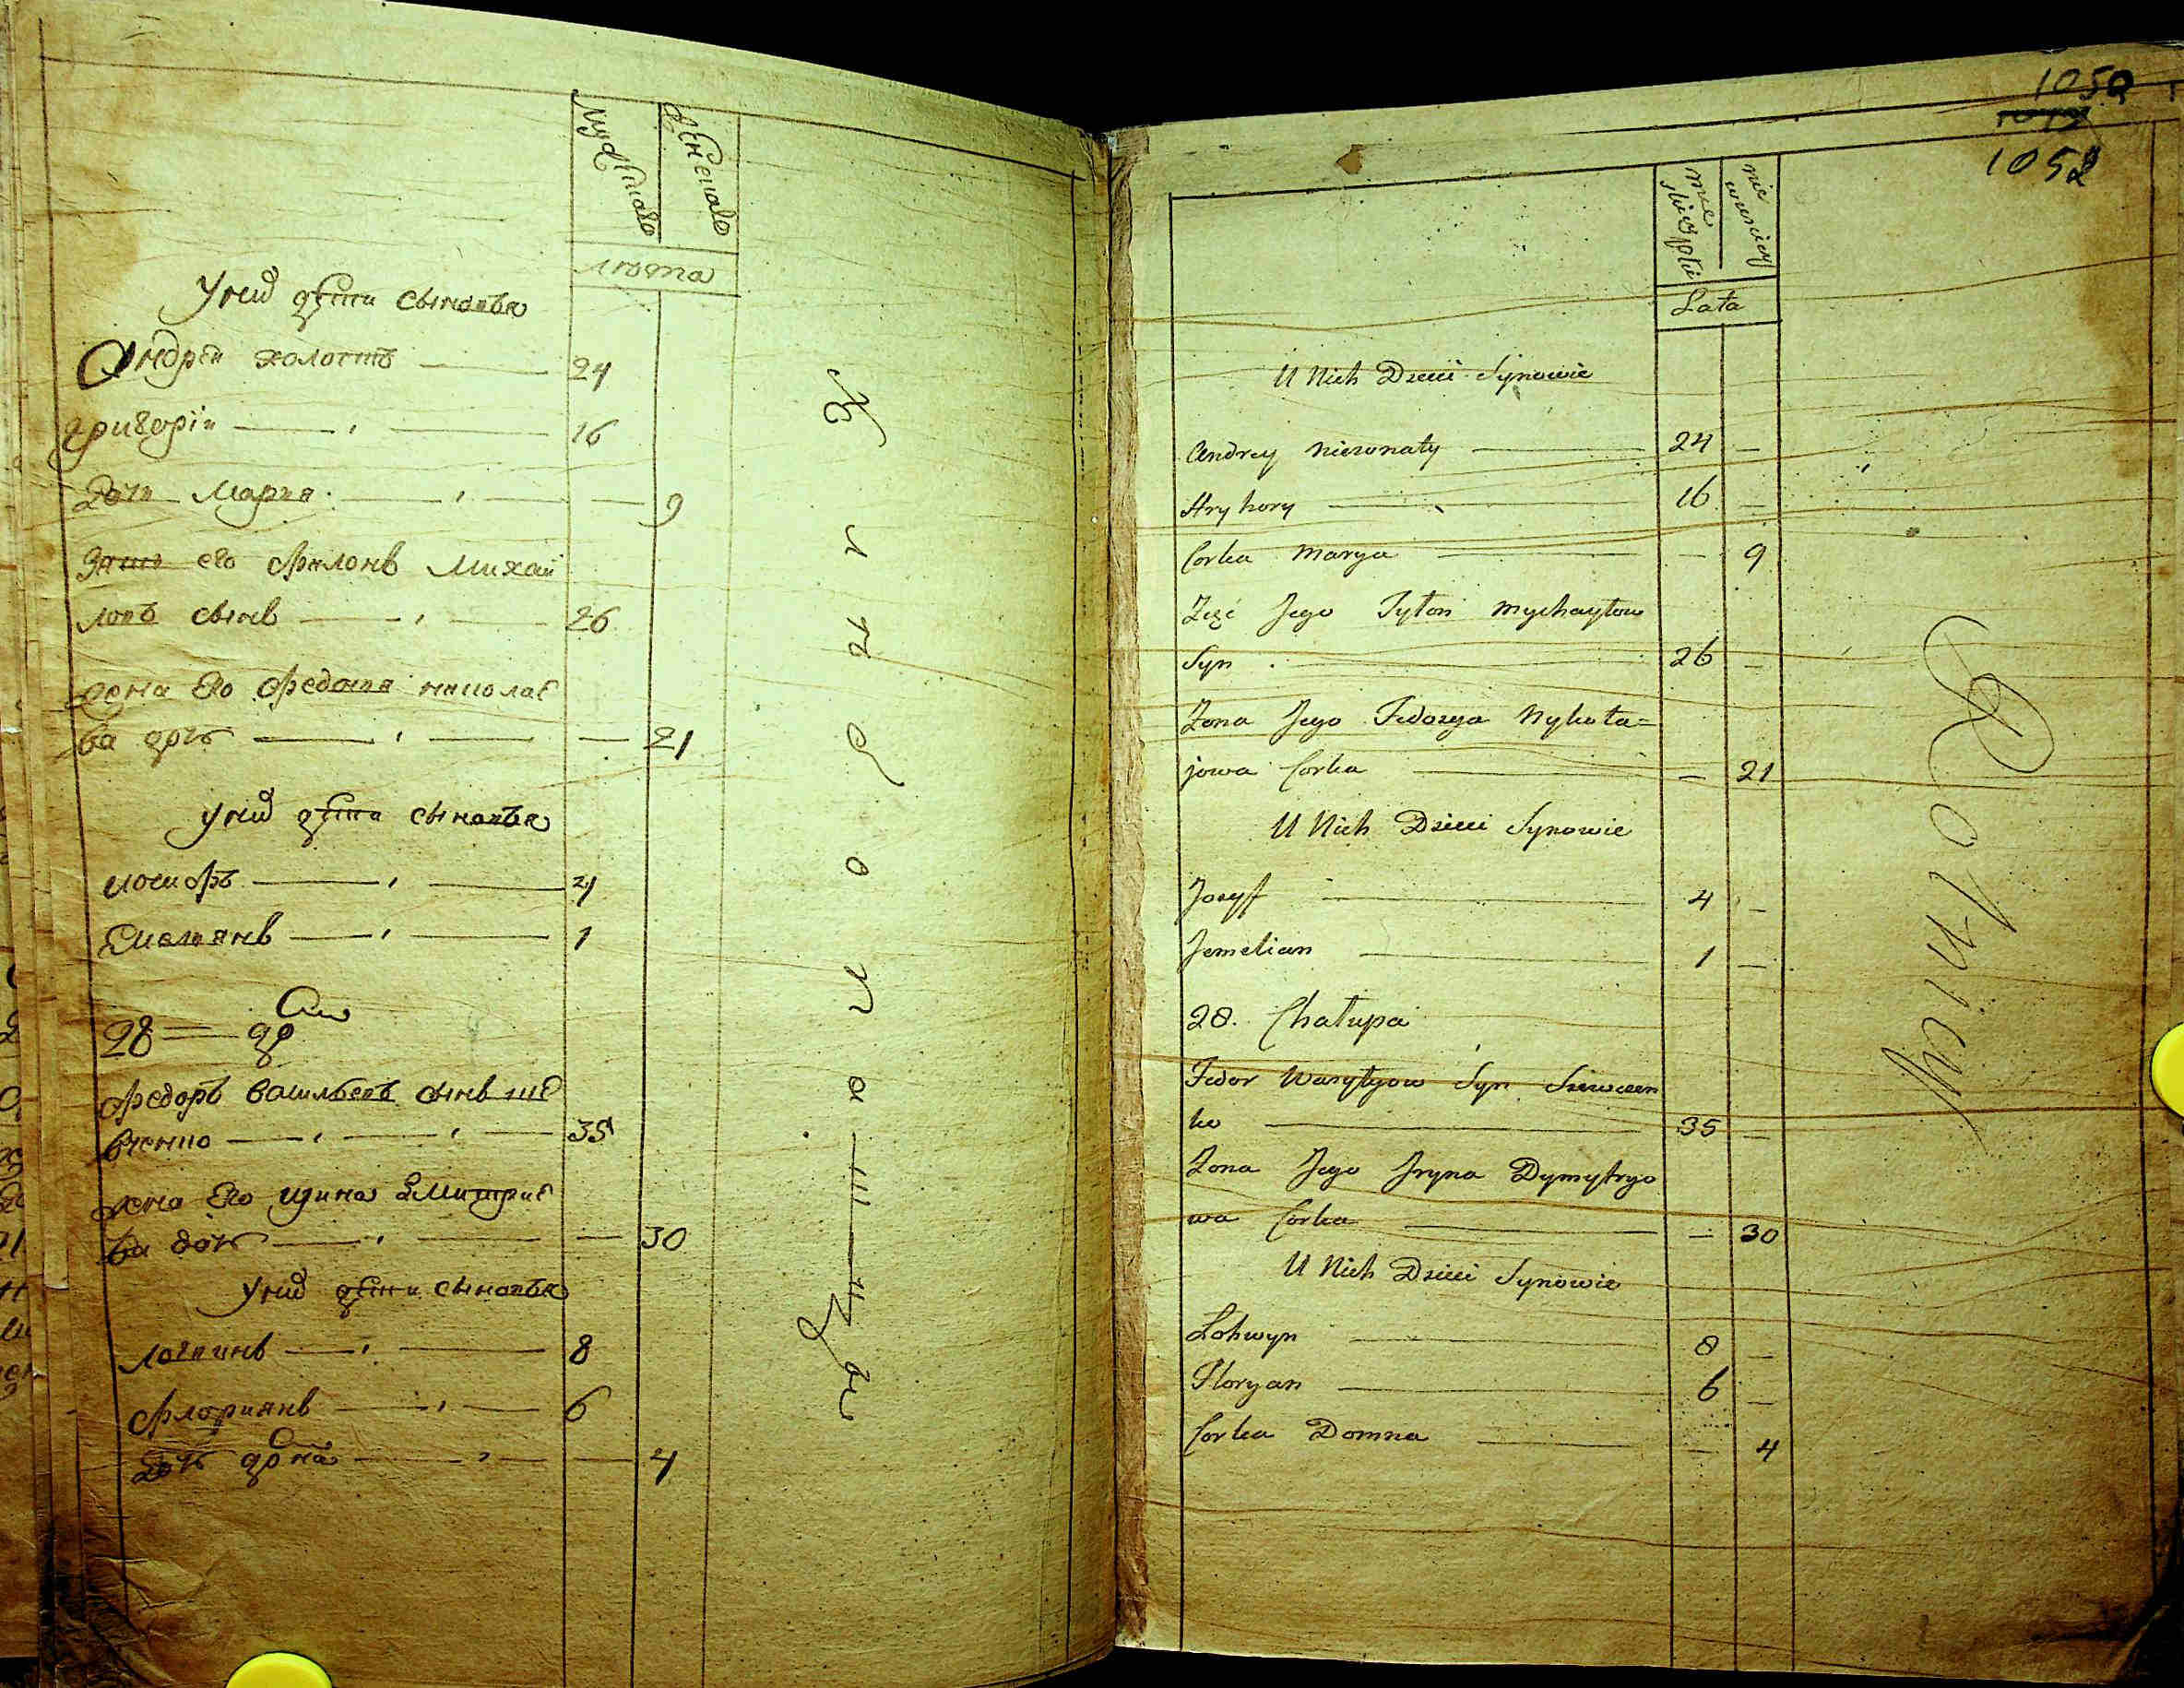 Мужеска
Женска
лѣта
У них дѣти сыновья
Андрей холостъ 24
Григорій 16
Дочь Мария 9
Зять его Филонъ Михай
ловъ сынъ 26
жена Его Федосия николае
ва дочь 21
У них дѣти сыновья
иосифъ 4
Емелиянъ 1
28 дво
Федоръ васильевъ сынъ ше
вченко 35
жена Его ирина Дмитрие
ва дочь 30
У них дѣти сыновья
логвинъ 8
Флориянъ 6
Дочь домна 4
1050
1052
męż
skiey płci
nie
wieściey
Lata
U Nich Dzieci Synowie
Andrey nieżonaty 24 —
Hryhory 16 —
Corka Marya — 9
Zięć Jego Fyłon Mychayłow
Syn 26 —
Zona Jego Fedosya Nykoła=
jowa Corka — 21
U Nich Dzieci Synowie
Jozyff 4 —
Jemelian 1 —
28. Chałupa
Fedor Wasylyow Syn Szewczen
ko 35 —
Zona Jego Jryna Dymytryo
wa Corka — 30
U Nich Dzieci Synowie
Lohwyn 8 —
Floryan 6 —
Corka Domna — 4
Rolnicy